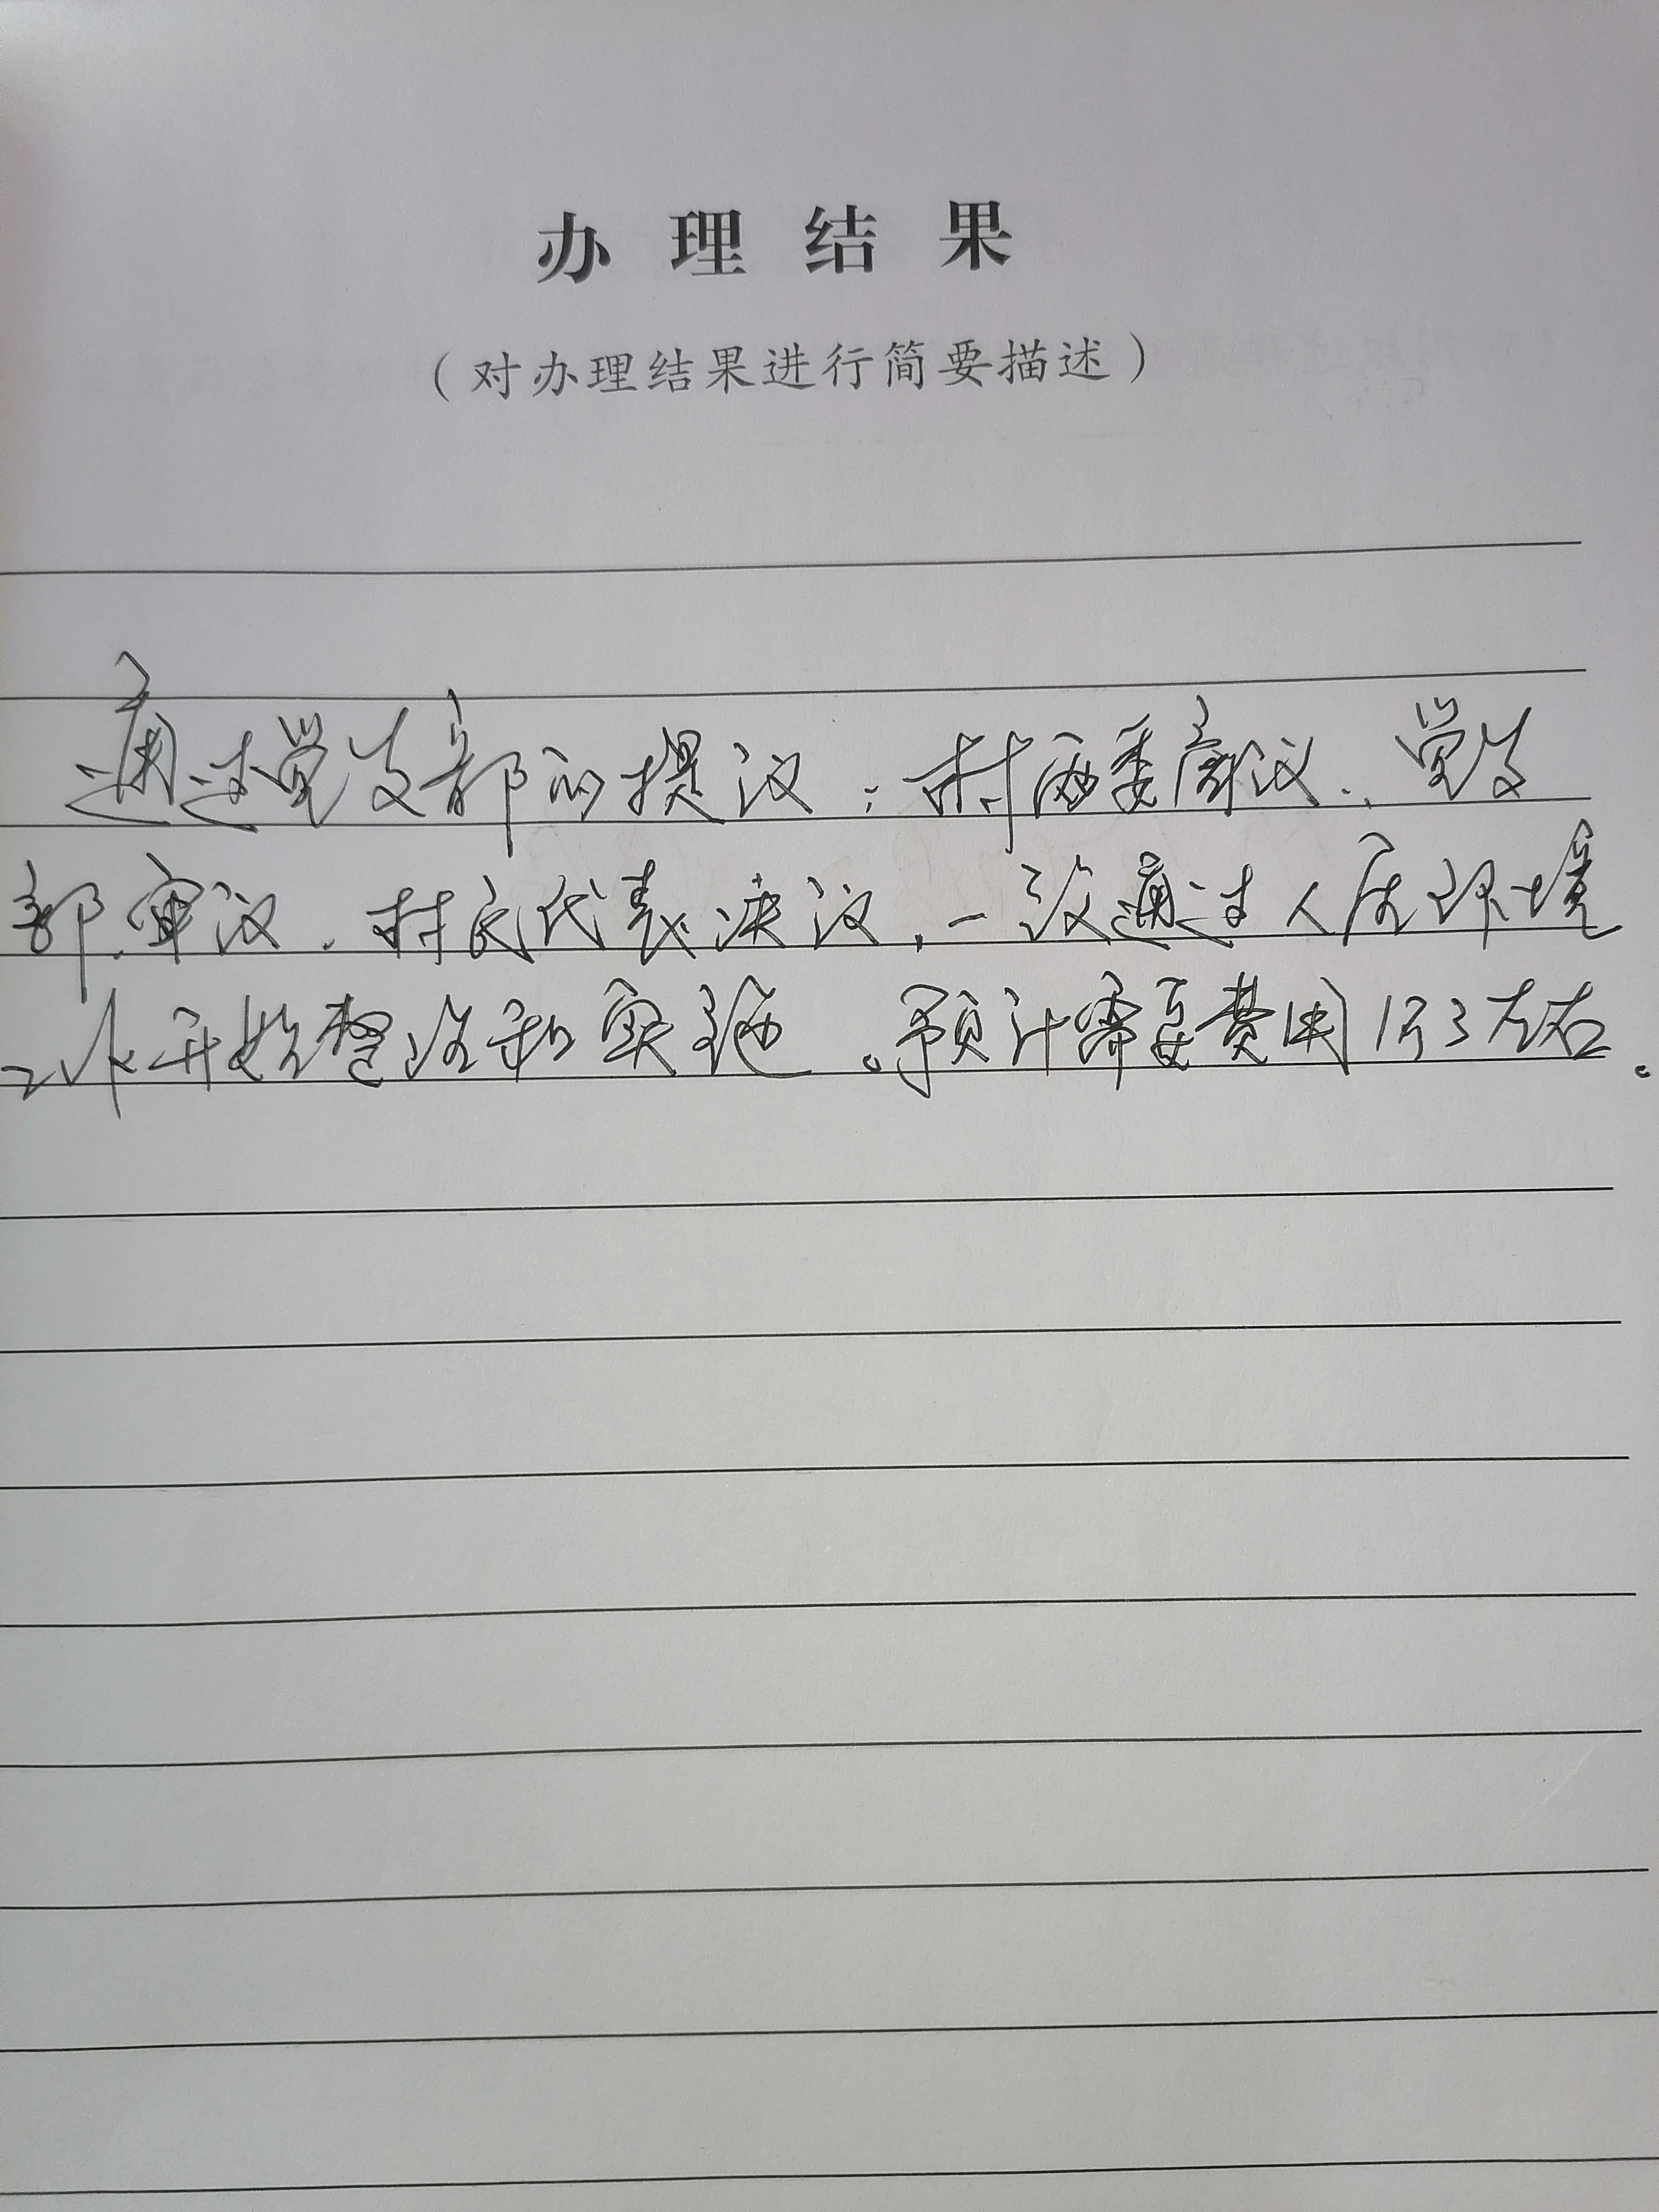 办理结果
（对办理结果进行简要描述）
通过党支部的提议；村两委商议.、党支
部.审议.村民代表决议，一致通过人居环境
工作开始整治和实施。预计需要费用1万3左右。